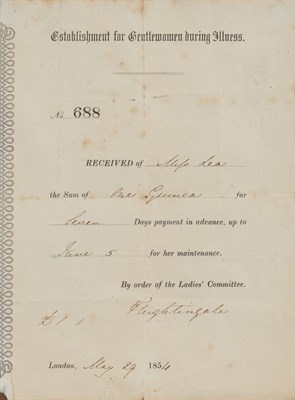 Establishment for Gentlewomen during Illness.
No 688
RECEIVED of Miss Lea
the Sum of One Guinea for
Seven Days payment in advance, up to
June 5 for her maintenance.
By order of the Ladies' Committee.
£1 , 1 FNightingale
London, May 29 1854